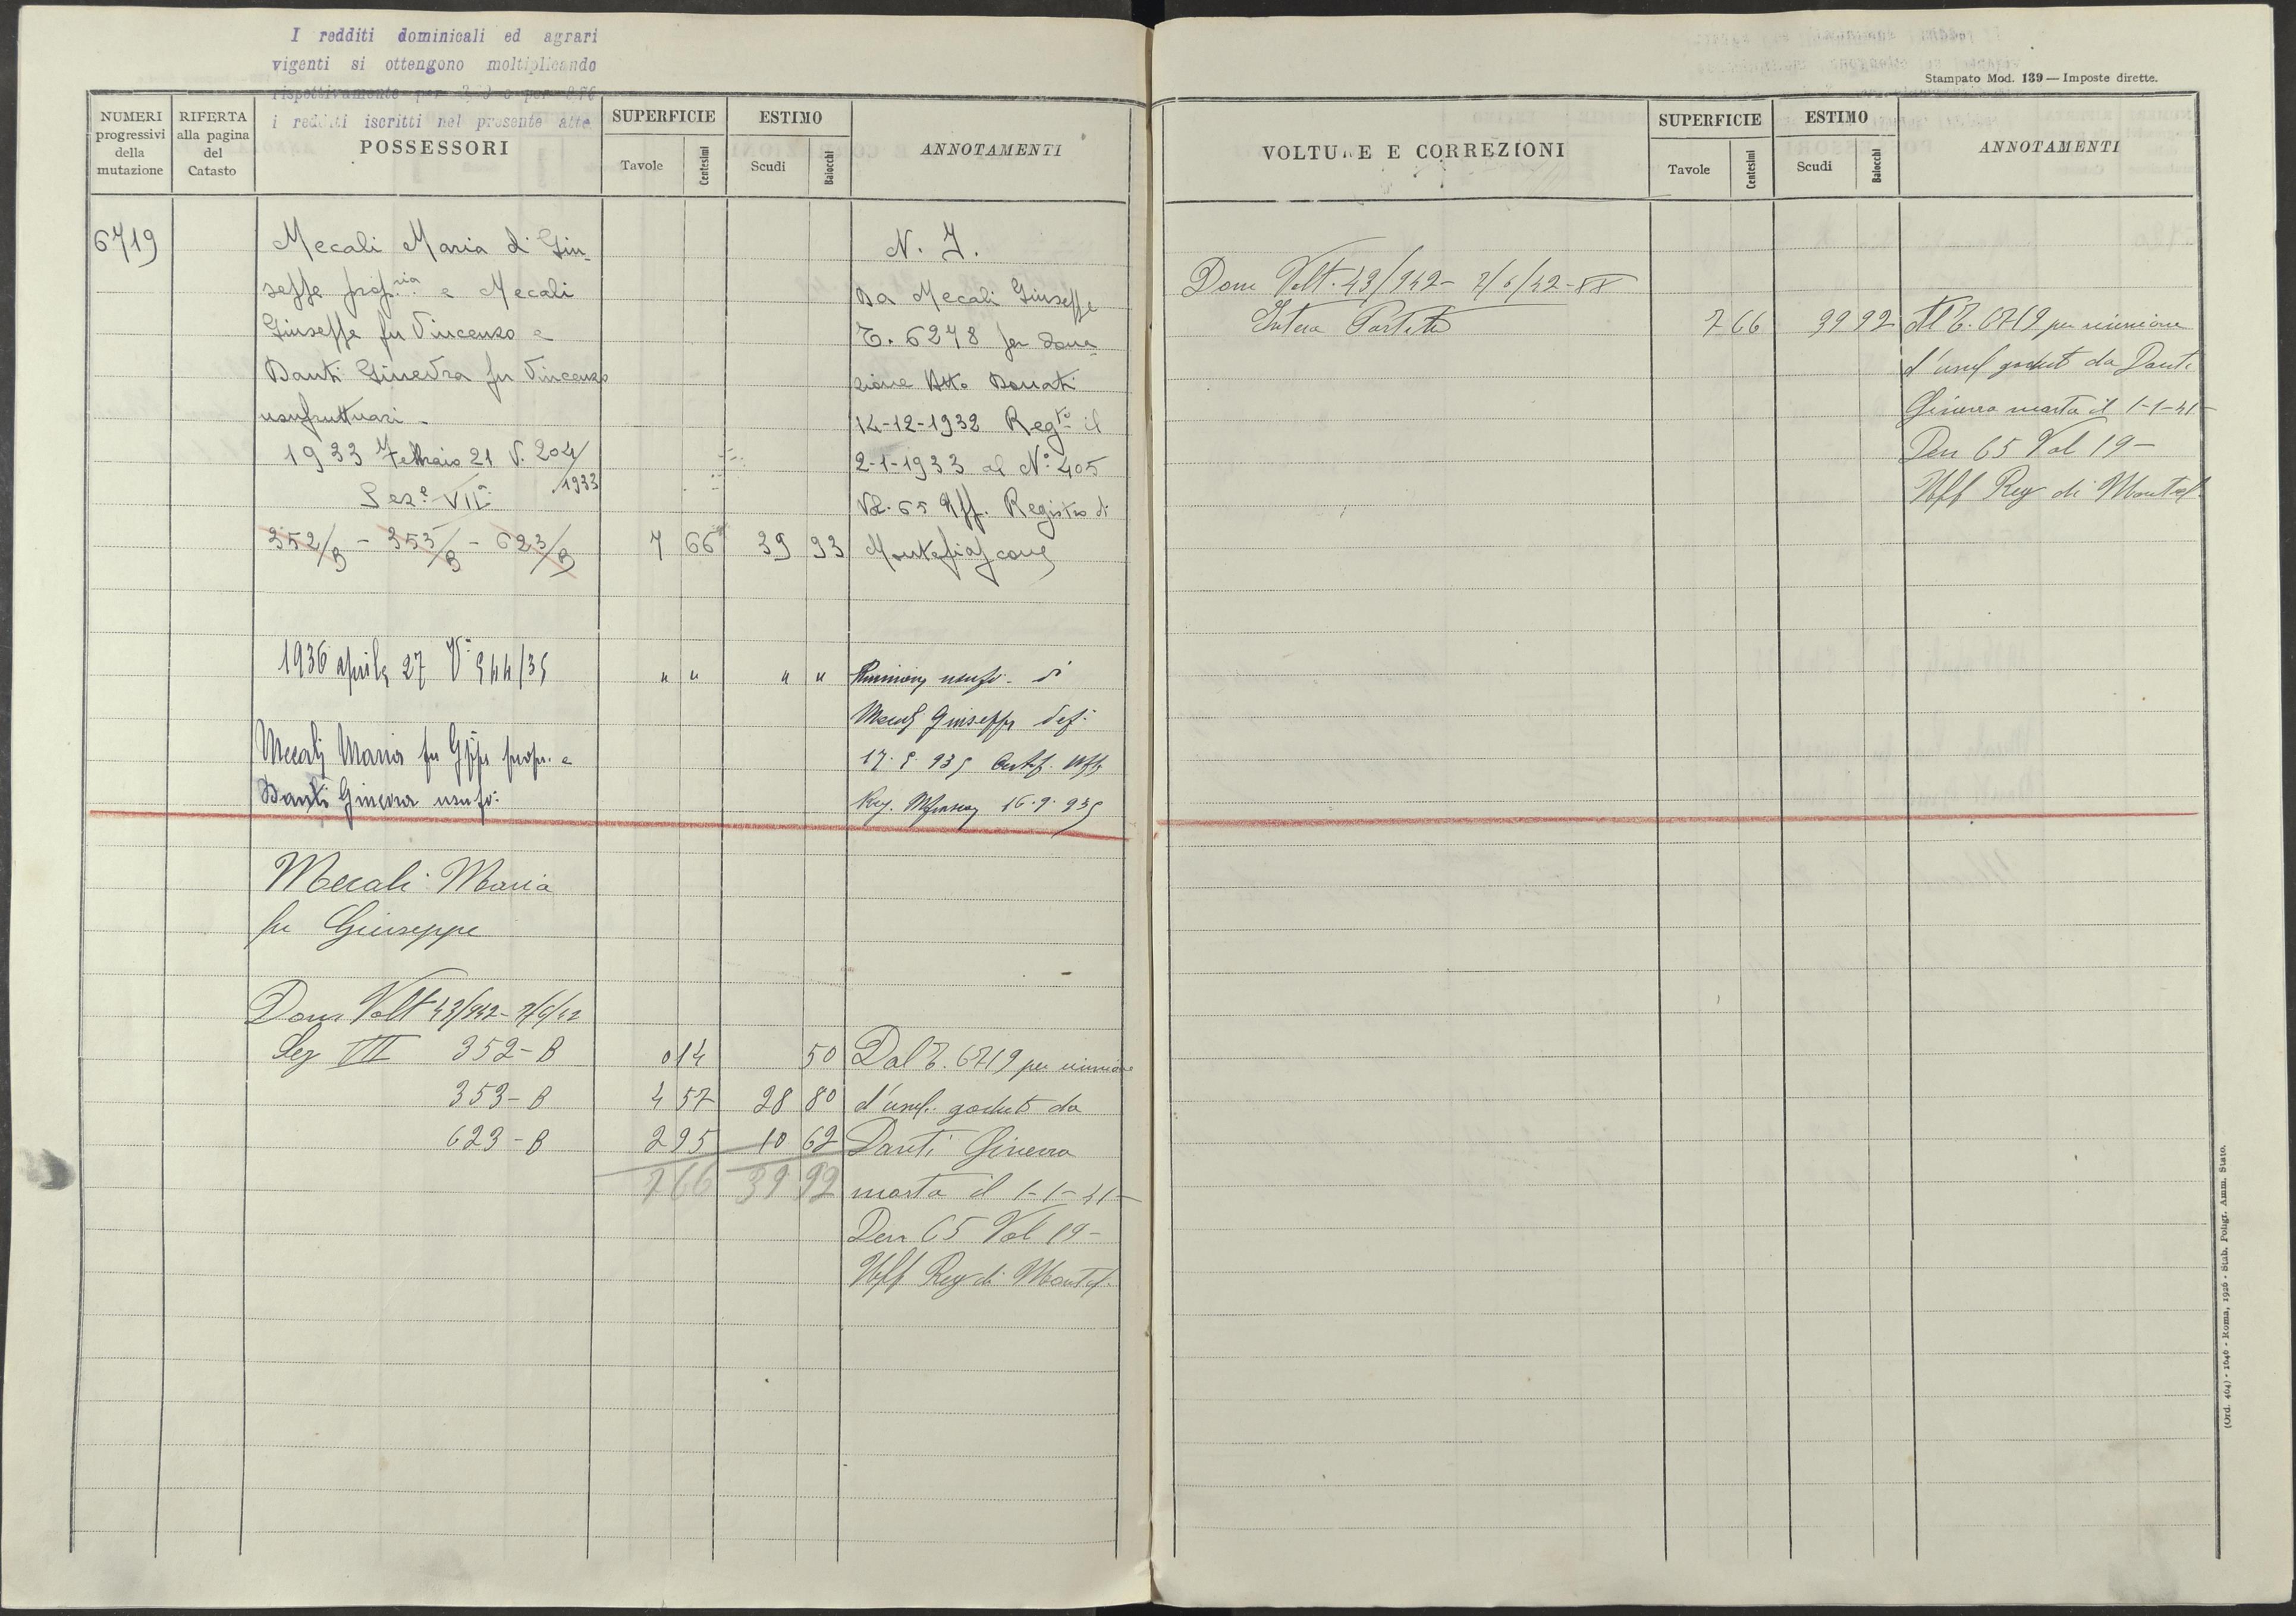 I redditi dominicali ed agrari
vigenti si ottengono moltiplicando
rispettivamente per
i redditi iscritti nel presente atto
NUMERI progressivi della mutazione
RIFERTA alla pagina del Catasto
POSSESSORI
SUPERFICIE
Tavole
Centesimi
ESTIMO
Scudi
Baiocchi
ANNOTAMENTI
6719
Mecali Maria di Giu-
seppe prop.ria e Mecali
Giuseppe fu Vincenzo e
Danti Ginevra fu Vincenzo
usufruttuari -
1933 Febbraio 21 V. 204/
1933
Sez.e VIIa
352/B - 353/B - 623/B 7 66 39 93
N. I.
Da Mecali Giuseppe
T. 6278 per dona-
zione Atto Donati
14-12-1932 Reg.to il
2-1-1933 al N.o 405
Vol. 65 Uff. Registro di
Montefiascone
1936 aprile 27 V. 944/35 " " " "
Mecali Maria fu Gius. propr. e
Danti Ginevra usufr.
Riunione usufr. di
Mecali Giuseppe def.
17. 5 935 Certif. Uff.
Reg. 16.9.935
Mecali Maria
fu Giuseppe
Dom Volt 43/942 - 2/6/42
Sez VII 352-B 0 14 50
353-B 4 57 28 80
623-B 2 95 10 62
7 66 39 92
Dal T. 6719 per riunione
d'usuf. goduto da
Danti Ginevra
morta il 1-1-41-
Den 65 Vol 19-
Uff Reg di Montef.
Stampato Mod. 139 — Imposte dirette.
VOLTURE E CORREZIONI
SUPERFICIE
Tavole
Centesimi
ESTIMO
Scudi
Baiocchi
ANNOTAMENTI
Dom Volt. 43/942 - 2/6/42 - XX
Intera Partita 7 66 39 92
Al T. 6719 per riunione
d'usuf goduto da Danti
Ginevra morta il 1-1-41-
Den 65 Vol 19-
Uff Reg di Montef.
(Ord. 464) - 1646 - Roma, 1926 - Stab. Poligr. Amm. Stato.